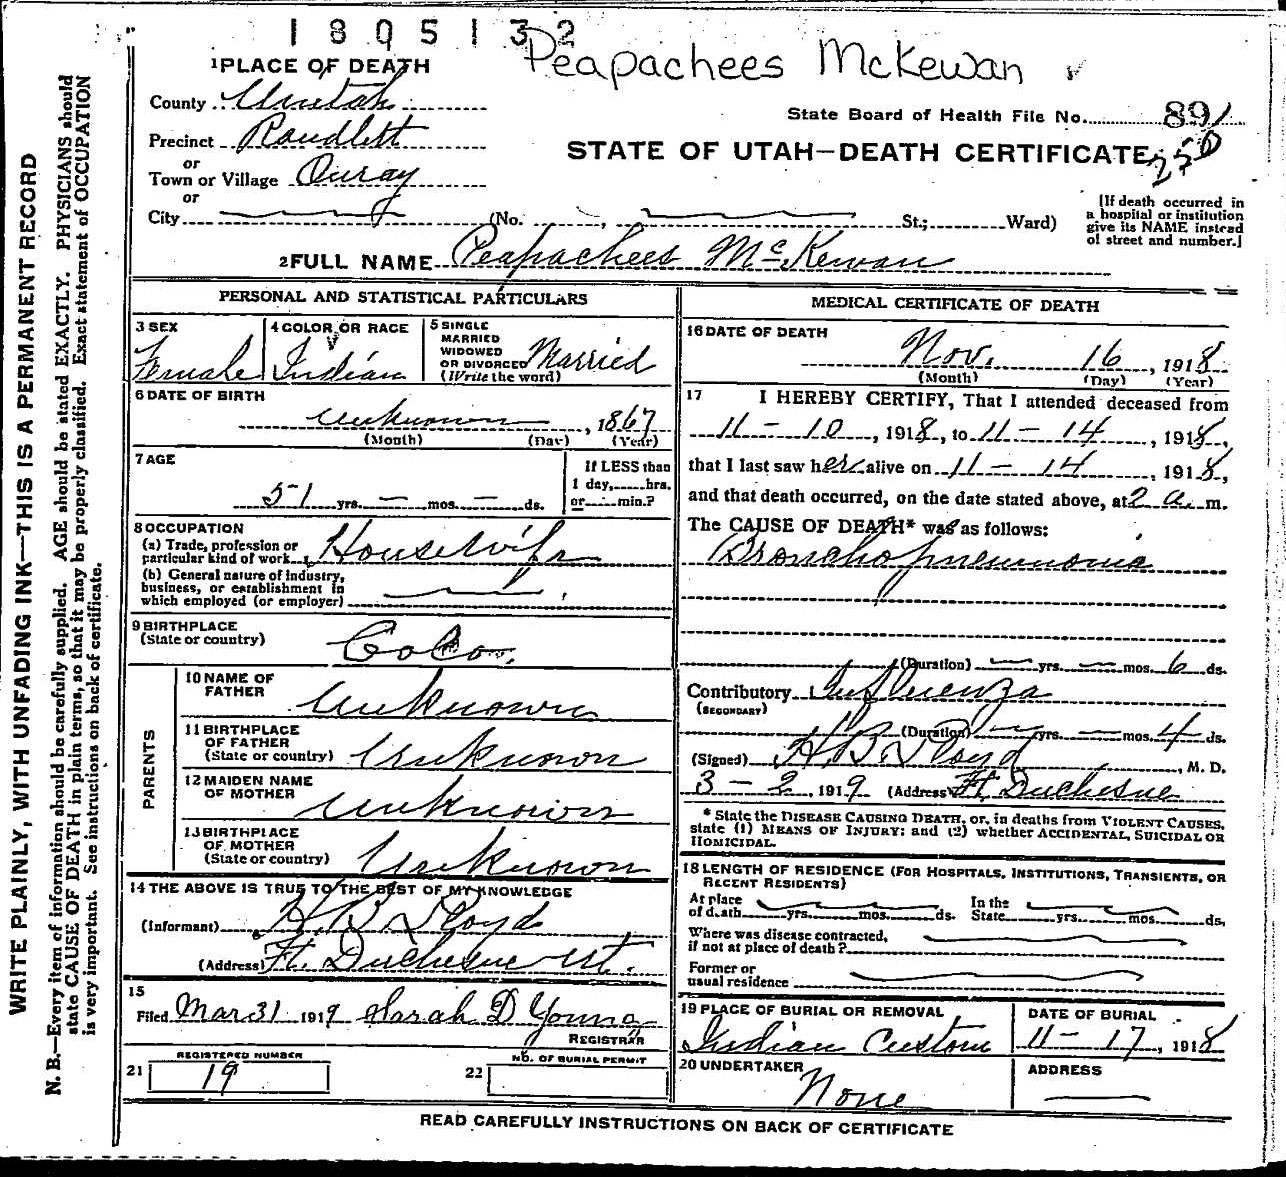 1805132
Peapachees McKewan
1 PLACE OF DEATH
County Uintah
State Board of Health File No. 891
Precinct Randlett
250
STATE OF UTAH—DEATH CERTIFICATE
or
Town or Village Ouray
or
City (No. , St.; Ward)
[If death occurred in
a hospital or institution
give its NAME instead
of street and number.]
2 FULL NAME Peapachees McKewan
PERSONAL AND STATISTICAL PARTICULARS
3 SEX
Female
4 COLOR OR RACE
Indian
5 SINGLE
MARRIED
WIDOWED
OR DIVORCED
(Write the word)
Married
6 DATE OF BIRTH
unknown , 1867
(Month) (Day) (Year)
7 AGE
51 yrs. — mos. — ds.
If LESS than
1 day, hrs.
or min.?
8 OCCUPATION
(a) Trade, profession or
particular kind of work Housewife
(b) General nature of industry,
business, or establishment in
which employed (or employer)
9 BIRTHPLACE
(State or country) Colo.
PARENTS
10 NAME OF
FATHER Unknown
11 BIRTHPLACE
OF FATHER
(State or country) Unknown
12 MAIDEN NAME
OF MOTHER Unknown
13 BIRTHPLACE
OF MOTHER
(State or country) Unknown
14 THE ABOVE IS TRUE TO THE BEST OF MY KNOWLEDGE
(Informant) H B Lloyd
(Address) Ft. Duchesne Ut.
15
Filed Mar 31 1919 Sarah D Young
REGISTRAR
REGISTERED NUMBER
21 19
NO. OF BURIAL PERMIT
22
MEDICAL CERTIFICATE OF DEATH
16 DATE OF DEATH
Nov. 16 , 1918
(Month) (Day) (Year)
17 I HEREBY CERTIFY, That I attended deceased from
11 – 10 , 1918, to 11 – 14 , 1918,
that I last saw her alive on 11 – 14 , 1918,
and that death occurred, on the date stated above, at 2 a. m.
The CAUSE OF DEATH* was as follows:
Bronchopneumonia
(Duration) — yrs. — mos. 6 ds.
Contributory Influenza
(SECONDARY)
(Duration) — yrs. — mos. 4 ds.
(Signed) H B Lloyd , M. D.
3 – 2 , 1919 (Address) Ft. Duchesne
* State the DISEASE CAUSING DEATH, or, in deaths from VIOLENT CAUSES,
state (1) MEANS OF INJURY; and (2) whether ACCIDENTAL, SUICIDAL OR
HOMICIDAL.
18 LENGTH OF RESIDENCE (FOR HOSPITALS, INSTITUTIONS, TRANSIENTS, OR
RECENT RESIDENTS)
At place
of death yrs. mos. ds.
In the
State yrs. mos. ds.
Where was disease contracted,
if not at place of death?
Former or
usual residence
19 PLACE OF BURIAL OR REMOVAL
Indian Custom
DATE OF BURIAL
11 – 17 , 1918
20 UNDERTAKER
None
ADDRESS
READ CAREFULLY INSTRUCTIONS ON BACK OF CERTIFICATE
WRITE PLAINLY, WITH UNFADING INK—THIS IS A PERMANENT RECORD
N. B.—Every item of information should be carefully supplied. AGE should be stated EXACTLY. PHYSICIANS should
state CAUSE OF DEATH in plain terms, so that it may be properly classified. Exact statement of OCCUPATION
is very important. See instructions on back of certificate.